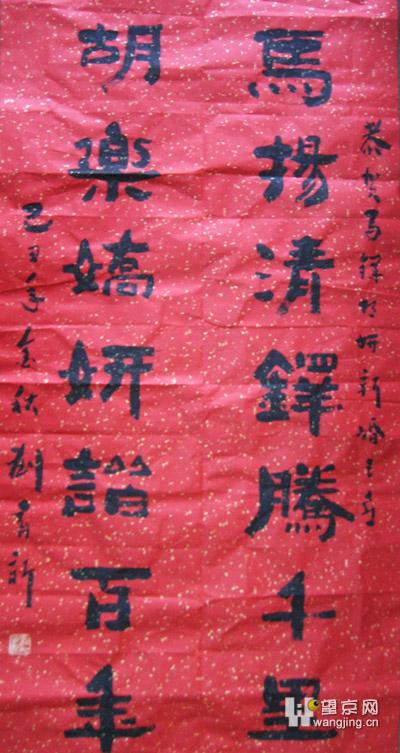 恭贺马铎胡妍新婚之喜
馬揚清鐸騰千里
胡樂嬌妍諧百年
己丑年金秋劉育新
望京网
wangjing.cn